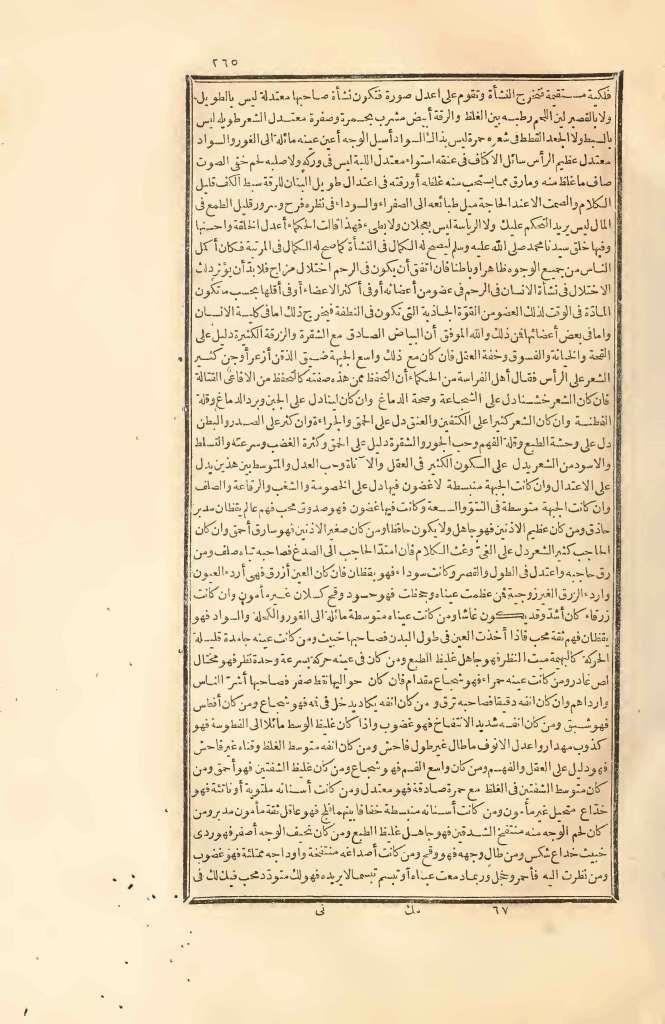 ٢٦٥
فلكية مستقيمة فتخرج النشأة وتقوم على اعدل صورة فتكون نشأة صاحبها معتدلة ليس بالطويل
ولا بالقصير لين اللحم رطبه بين الغلظ والرقة أبيض مشرب بحمرة وصفرة معتدل الشعر طويله ليس
بالسبط ولا الجعد القطط فى شعره حمرة ليس بذاك السواد أسيل الوجه أعين عينه مائلة الى الغور والسواد
معتدل عظيم الرأس سائل الاكتاف فى عنقه استواء معتدل اللبة ليس فى وركه ولا صلبه لحم خفى الصوت
صاف ما غلظ منه وما رق مما يستحب منه غلظه أو رقته فى اعتدال طويل البنان للرقة سبط الكف قليل
الكلام والصمت الا عند الحاجة ميل طبائعه الى الصفراء والسوداء فى نظره فرح وسرور قليل الطمع فى
المال ليس يريد التحكم عليك ولا الرياسة ليس بعجلان ولا بطىء فهذا قالت الحكماء أعدل الخلقة وأحسنها
وفيها خلق سيدنا محمد صلى الله عليه وسلم ليصح له الكمال فى النشأة كما صح له الكمال فى المرتبة فكان أكمل
الناس من جميع الوجوه ظاهرا وباطنا فان اتفق أن يكون فى الرحم اختلال مزاج فلا بد أن يؤثر ذلك
الاختلال فى نشأة الانسان فى الرحم فى عضو من أعضائه أو فى أكثر الاعضاء أو فى أقلها بحسب ما تكون
المادة فى الوقت لذلك العضو من القوة الجاذبة التى تكون فى النطفة فيخرج ذلك اما فى كلية الانسان
واما فى بعض أعضائها فمن ذلك والله الموفق أن البياض الصادق مع الشقرة والزرقة الكثيرة دليل على
القحة والخيانة والفسوق وخفة العقل فان كان مع ذلك واسع الجبهة ضيق الذقن أزعر أوجن كثير
الشعر على الرأس فقال أهل الفراسة من الحكماء أن التحفظ ممن هذه صفته كالتحفظ من الافاعى القتالة
فان كان الشعر خشنا دل على الشجاعة وصحة الدماغ وان كان لينا دل على الجبن وبرد الدماغ وقلة
الفطنة وان كان الشعر كثيرا على الكتفين والعنق دل على الحمق والجراءة وان كثر على الصدر والبطن
دل على وحشة الطبع وقلة الفهم وحب الجور والشقرة دليل على الحمق وكثرة الغضب وسرعته والتسلط
والاسود من الشعر يدل على السكون الكثير فى العقل والاناة وحب العدل والمتوسط بين هذين يدل
على الاعتدال وان كانت الجبهة منبسطة لا غضون فيها دل على الخصومة والشغب والرقاعة والصلف
وان كانت الجبهة متوسطة فى النتو والسعة وكانت فيها غضون فهو صدوق محب فهم عالم يقظان مدبر
حاذق ومن كان عظيم الاذنين فهو جاهل الا أنه يكون حافظا ومن كان صغير الاذنين فهو سارق أحمق وان كان
الحاجب كثير الشعر دل على العى وغث الكلام فان امتد الحاجب الى الصدغ فصاحبه تياه صلف ومن
رق حاجبه واعتدل فى الطول والقصر وكانت سوداء فهو يقظان فان كان العين أزرق فهى أردء العيون
واردء الزرق الفيروزجية فمن عظمت عيناه وجحظت فهو حسود وقح كسلان غير مأمون وان كانت
زرقاء كان أشد وقد يكون غاشا ومن كانت عيناه متوسطة مائلة الى الغور والكحلة والسواد فهو
يقظان فهم ثقة محب فاذا أخذت العين فى طول البدن فصاحبها خبيث ومن كانت عينه جامدة قليلة
الحركة كالبهيمة ميت النظر فهو جاهل غليظ الطبع ومن كان فى عينه حركة بسرعة وحدة نظر فهو محتال
لص غادر ومن كانت عينه حمراء فهو شجاع مقدام فان كان حواليها نقط صفر فصاحبها أشر الناس
وارداهم وان كان انفه دقيقا فصاحبه نزق ومن كان انفه يكاد يدخل فى فمه فهو شجاع ومن كان أفطس
فهو شبق ومن كان انفه شديد الانتفاخ فهو غضوب واذا كان غليظ الوسط مائلا الى الفطوسة فهو
كذوب مهدار واعدل الانوف ما طال غير طول فاحش ومن كان انفه متوسط الغلظ وقناه غير فاحش
فهو دليل على العقل والفهم ومن كان واسع الفم فهو شجاع ومن كان غليظ الشفتين فهو أحمق ومن
كان متوسط الشفتين فى الغلظ مع حمرة صادقة فهو معتدل ومن كانت أسنانه ملتوية أو ناتئة فهو
خداع متحيل غير مأمون ومن كانت أسنانه منبسطة خفافا بينهما فلج فهو عاقل ثقة مأمون مدبر ومن
كان لحم الوجه منه منتفخ الشدقين فهو جاهل غليظ الطبع ومن كان نحيف الوجه أصفر فهو ردى
خبيث خداع شكس ومن طال وجهه فهو وقح ومن كانت أصداغه منتفخة وأوداجه ممتلئة فهو غضوب
ومن نظرت اليه فأحمر وخجل وربما دمعت عيناه أو تبسم تبسما لا يريده فهو لك متودد محب فيك لك فى
٦٧ مك نى